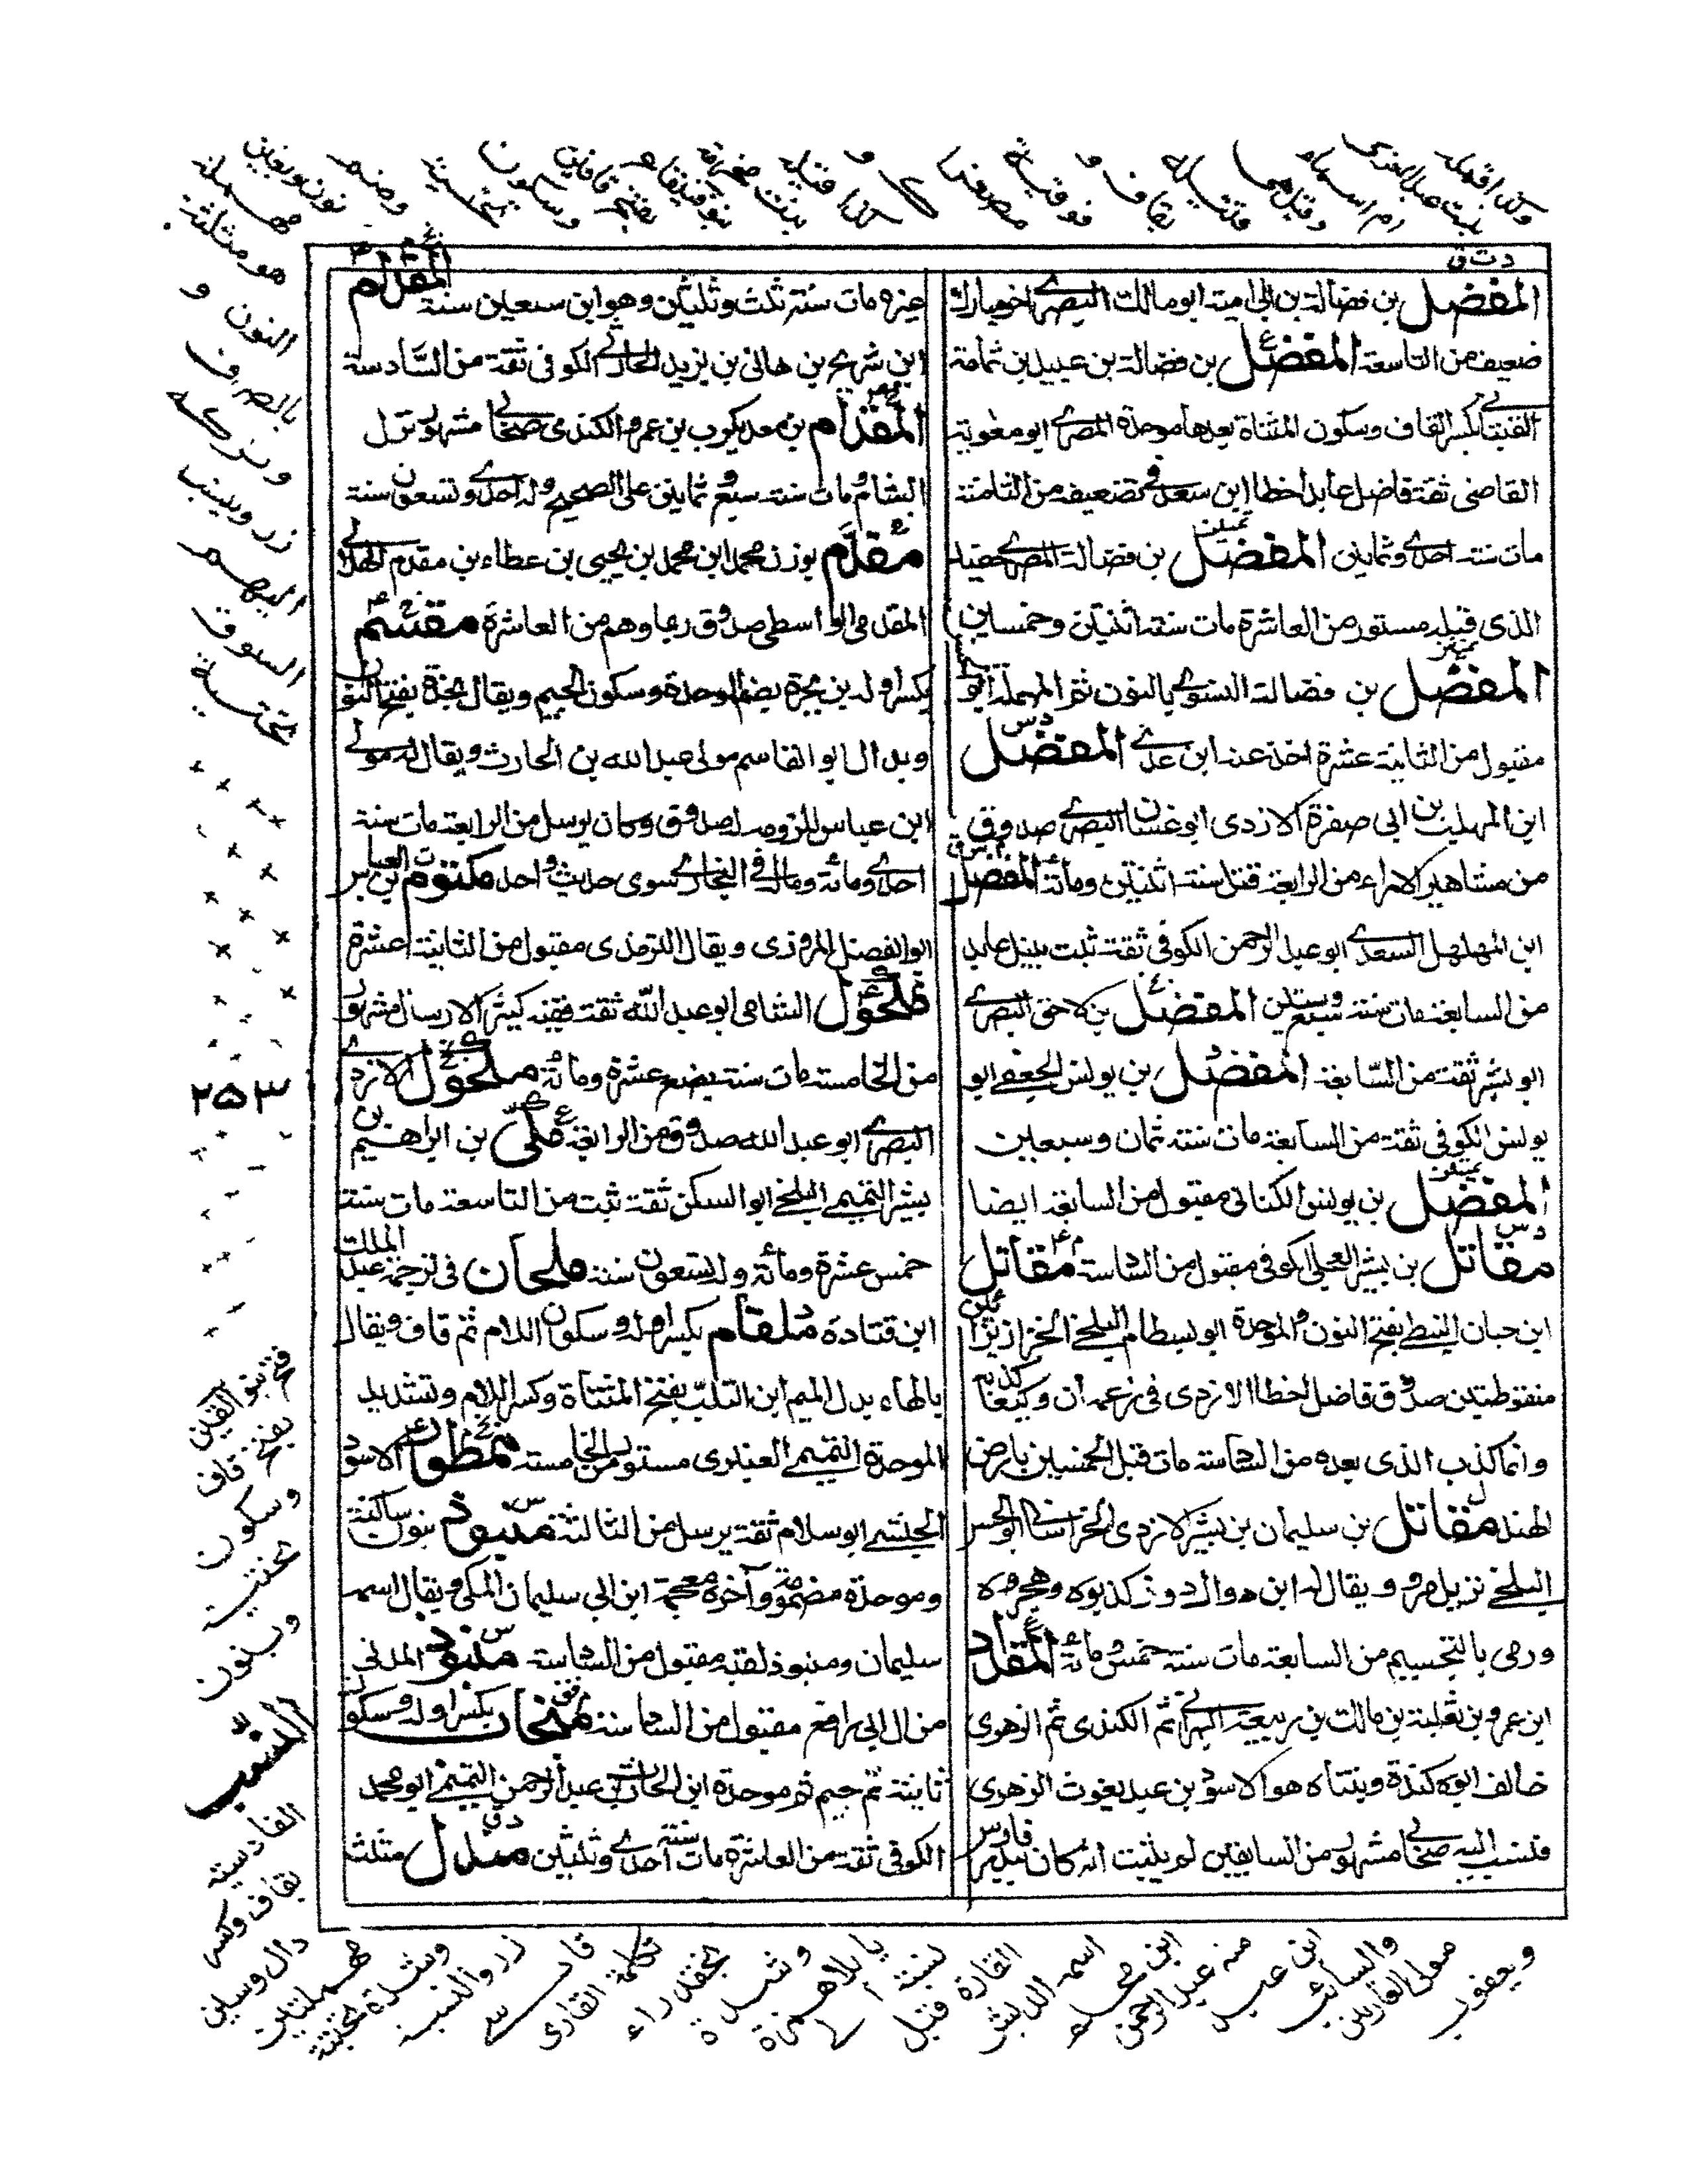 د ت ق
المفضل بن فضالة بن ابى امية ابو مالك البصرى اخو مبارك
ضعيف من التاسعة المفضل بن فضالة بن عبيد بن ثمامة
القتبانى بكسر القاف وسكون المثناة بعدها موحدة المصرى ابو معوية
القاضى ثقة فاضل عابد اخطا ابن سعد فى تضعيفه من الثامنة
مات سنة احدى وثمانين المفضل بن فضالة المصرى حفيد
الذى قبله مستور من العاشرة مات سنة اثنتين وخمسين
المفضل بن فضالة النسوى بالنون ثم المهملة ابو الحسن
مقبول من الثانية عشرة اخذ عنه ابن عدى المفضل
ابن المهلب بن ابى صفرة الازدى ابو غسان البصرى صدوق
من مشاهير الامراء من الرابعة قتل سنة اثنتين ومائة المفضل
ابن المهلهل السعدى ابو عبد الرحمن الكوفى ثقة ثبت نبيل عابد
من السابعة مات سنة سبع وستين المفضل بن لاحق البصرى
ابو بشر ثقة من السابعة المفضل بن يونس الجعفى ابو
يونس الكوفى ثقة من السابعة مات سنة ثمان وسبعين
المفضل بن يونس الكنانى مقبول من السابعة ايضا
مقاتل بن بشير العجلى الكوفى مقبول من السادسة مقاتل
ابن حبان النبطى بفتح النون والموحدة ابو بسطام البلخى الخزاز بزائين
منقوطتين صدوق فاضل اخطا الازدى فى زعمه ان وكيعا كذبه
وانما كذب الذى بعده من السادسة مات قبل الخمسين بارض
الهند مقاتل بن سليمان بن بشير الازدى الخراسانى ابو الحسن
البلخى نزيل مرو ويقال له ابن دوال دوز كذبوه وهجروه
ورمى بالتجسيم من السابعة مات سنة خمسين ومائة المقداد
ابن عمرو بن ثعلبة بن مالك بن ربيعة البهرانى ثم الكندى ثم الزهرى
حالف ابوه كندة وتبناه هو الاسود بن عبد يغوث الزهرى
فنسب اليه صحابى مشهور من السابقين لم يثبت انه كان ببدر فارس
غيره مات سنة ثلث وثلثين وهو ابن سبعين سنة المقدام
ابن شريح بن هانى بن يزيد الحارثى الكوفى ثقة من السادسة
المقدام بن معديكرب بن عمرو الكندى صحابى مشهور نزل
الشام ومات سنة سبع وثمانين على الصحيح وله احدى وتسعون سنة
مقدم بوزن محمد ابن محمد بن يحيى بن عطاء بن مقدم الهلالى
المقدمى الواسطى صدوق ربما وهم من العاشرة مقسم
بكسر اوله بن بجرة بضم الموحدة وسكون الجيم ويقال نجدة بفتح النون
وبدال ابو القاسم مولى عبد الله بن الحارث ويقال له مولى
ابن عباس للزومه له صدوق وكان يرسل من الرابعة مات سنة
احدى ومائة وماله فى البخارى سوى حديث واحد مكتوم بن العباس
ابو الفضل المروزى ويقال الترمذى مقبول من الثانية عشرة
مكحول الشامى ابو عبد الله ثقة فقيه كثير الارسال مشهور
من الخامسة مات سنة بضع عشرة ومائة مكحول الازدى
البصرى ابو عبد الله صدوق من الرابعة مكى بن ابراهيم بن
بشير التميمى البلخى ابو السكن ثقة ثبت من التاسعة مات سنة
خمس عشرة ومائة وله تسعون سنة ملحان فى ترجمة عبد الملك
ابن قتادة ملقام بكسر اوله وسكون اللام ثم قاف ويقال
بالهاء بدل الميم ابن التلب بفتح المثناة وكسر اللام وتشديد
الموحدة التميمى العنبرى مستور من الخامسة ممطور الاسود
الحبشى ابو سلام ثقة يرسل من الثالثة منبوذ بنون ساكنة
وموحدة مضمومة وآخره معجمة ابن ابى سليمان المكى ويقال اسمه
سليمان ومنبوذ لقبه مقبول من السادسة منبوذ المدنى
من ال ابى رافع مقبول من السادسة منجاب بكسر اوله وسكون
ثانيه ثم جيم ثم موحدة ابن الحارث بن عبد الرحمن التميمى ابو محمد
الكوفى ثقة من العاشرة مات سنة احدى وثلثين مندل مثلث
هو مثلثة
النون و
بالصرف
وتركه
زر وينسب
اليهم
السوق
تحتية
٢٥٣
بفتح قاف
وسكون
تحتية
وبنون
النسب
القادسية
بقاف وكسر
دال وسين
مهملتين
وشدة تحتية
زر والنسبة
تكملة القارى
بخفة راء
وشدة
يا بلا همزة
القارة
اسمه الديش
ابن محلم
منه عبد الرحمن
ابن عبد
والسائب
مولى القاريين
ويعقوب